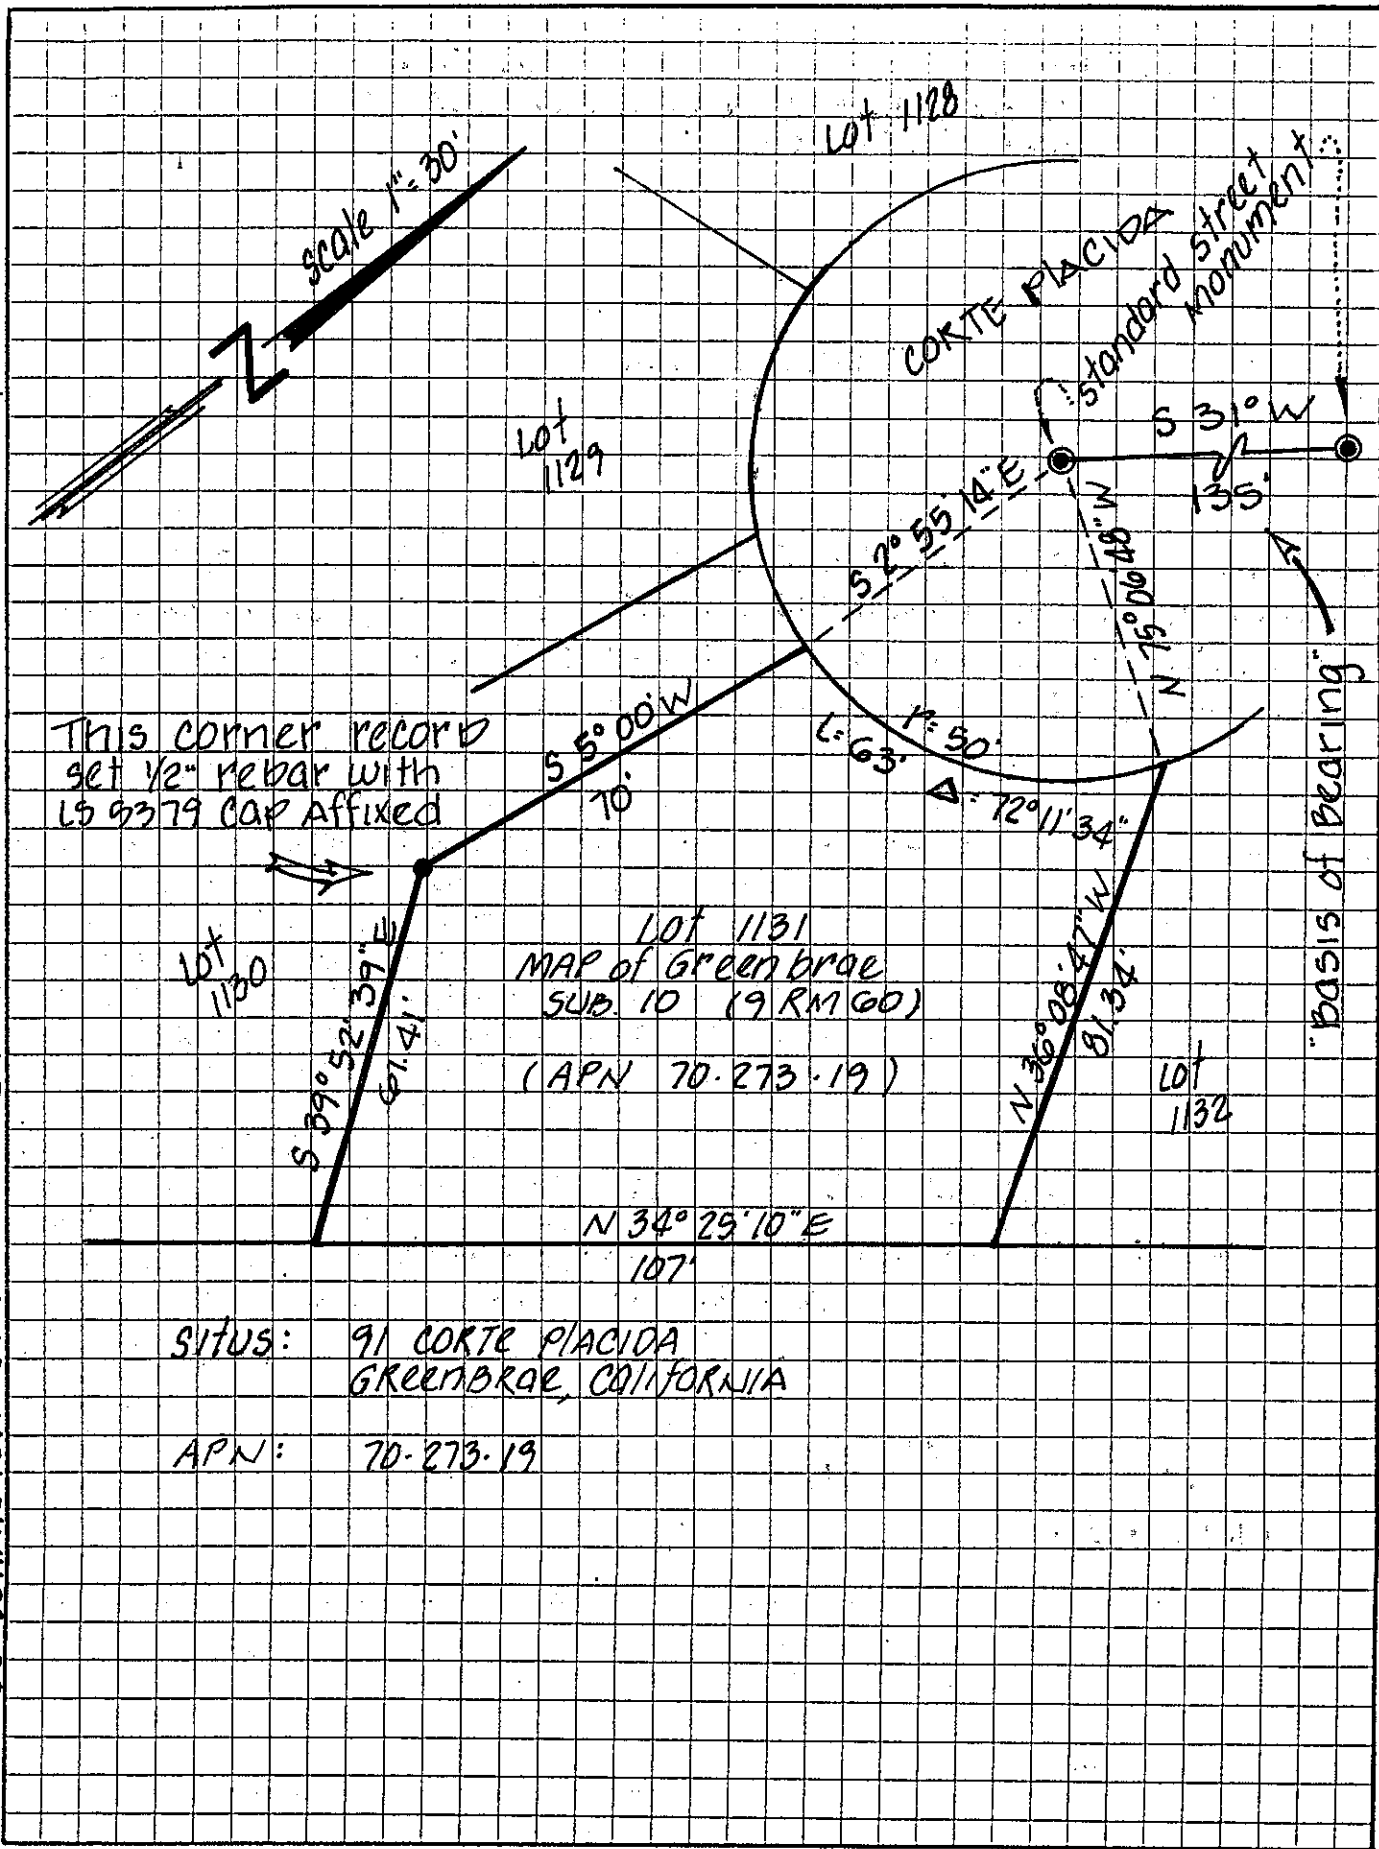 Lot 1128
scale 1"=30'
CORTE PLACIDA
standard street
monument
S 31° W
135'
Lot
1129
S 2° 55' 14" E
N 75° 06' 48" W
"Basis of Bearing"
This corner record
set 1/2" rebar with
LS 5379 cap Affixed
S 5° 00' W
70'
L= 63'
r= 50'
Δ= 72° 11' 34"
Lot
1130
S 39° 52' 39" E
61.41'
Lot 1131
MAP of Greenbrae
SUB. 10 (9 RM 60)
(APN 70-273-19)
N 36° 08' 47" W
81.34'
Lot
1132
N 34° 25' 10" E
107'
SITUS: 91 CORTE PLACIDA
GREENBRAE, CALIFORNIA
APN: 70-273-19